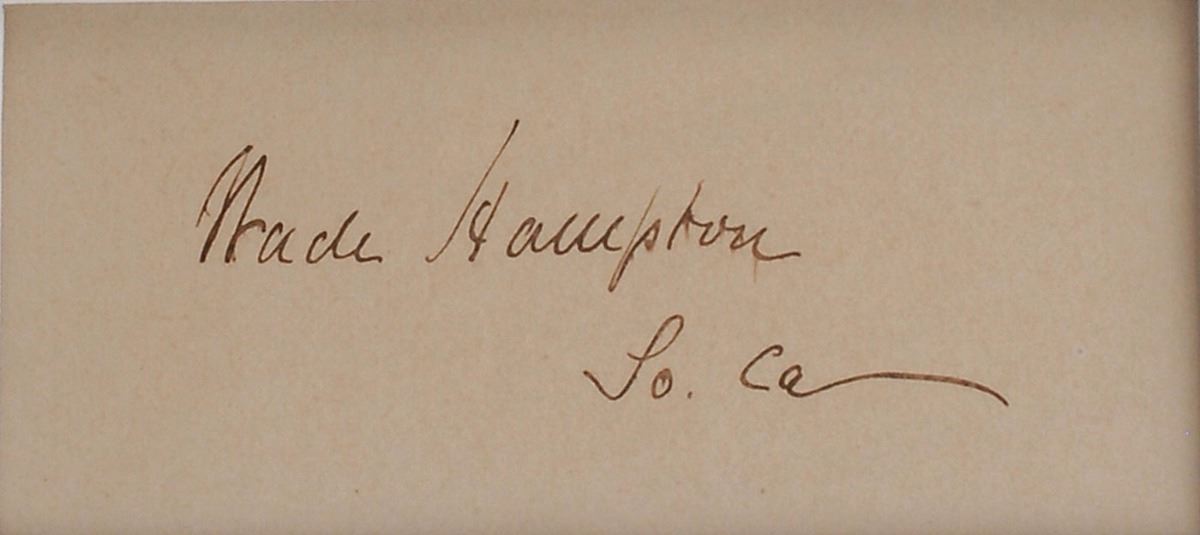 Wade Hampton
So. Ca